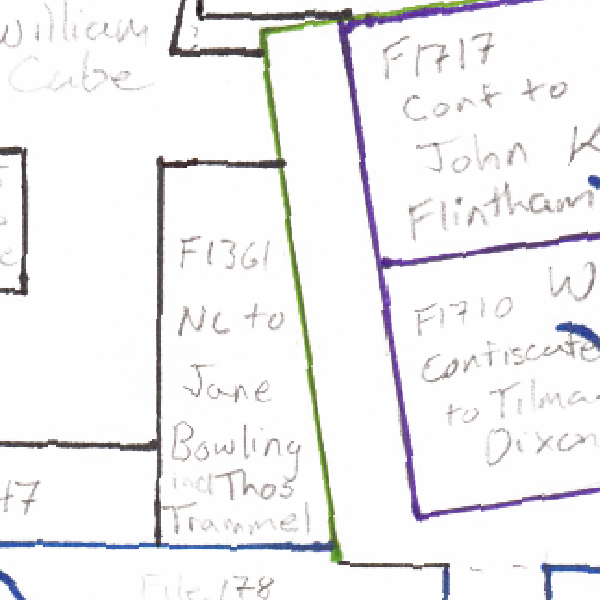 William
Cabe
F1717
Conf to
John K
Flintham
F1361
NC to
Jane
Bowling
incl Thos
Trammel
W
F1710
Confiscate
to Tilma
Dixon
47
File 178